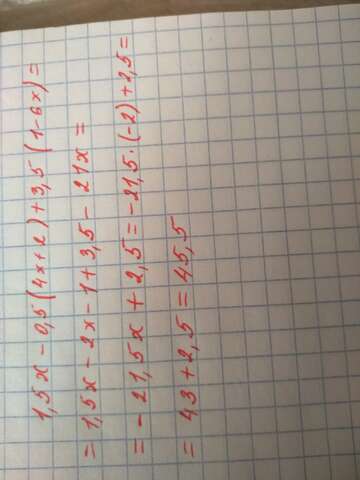 1,5x - 0,5(4x+2)+3,5(1-6x)=
= 1,5x - 2x - 1+3,5 - 21x =
= -21,5x + 2,5 = -21,5·(-2)+2,5=
= 43 +2,5 = 45,5